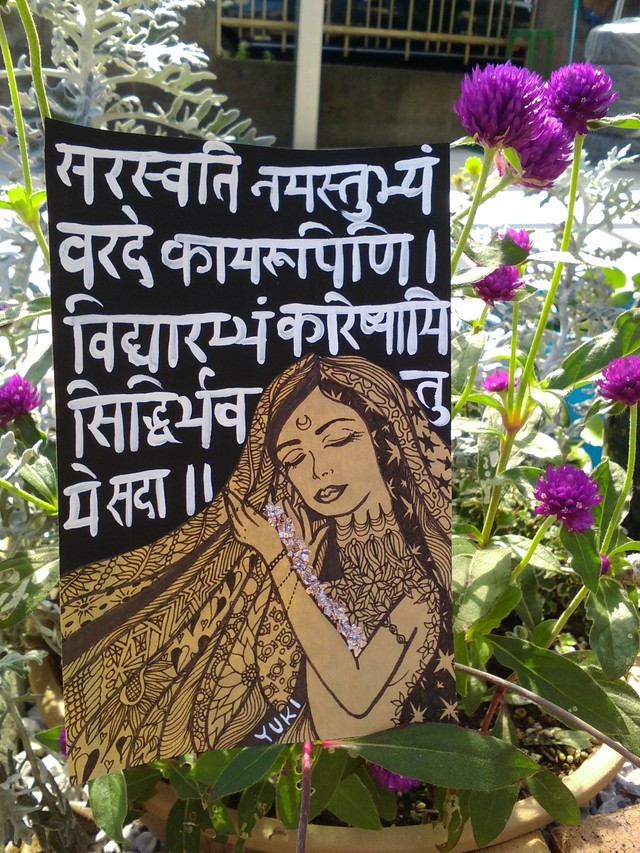 सरस्वति नमस्तुभ्यं
वरदे कामरूपिणि ।
विद्यारम्भं करिष्यामि
सिद्धिर्भव तु
मे सदा ॥
YUKI